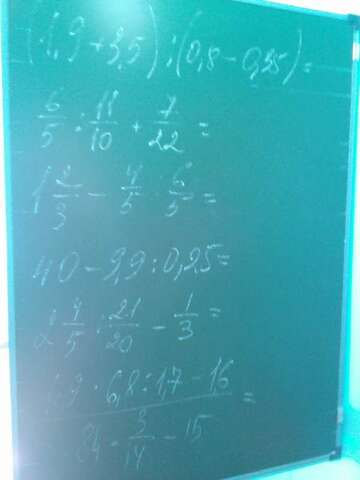 (1,9+3,5):(0,8-0,35)=
6/5:11/10+7/22=
1 2/3-4/5·6/5=
40-2,9:0,25=
2 4/5:21/20-1/3=
1,9·6,8:1,7-1,6
84·3/14-15=